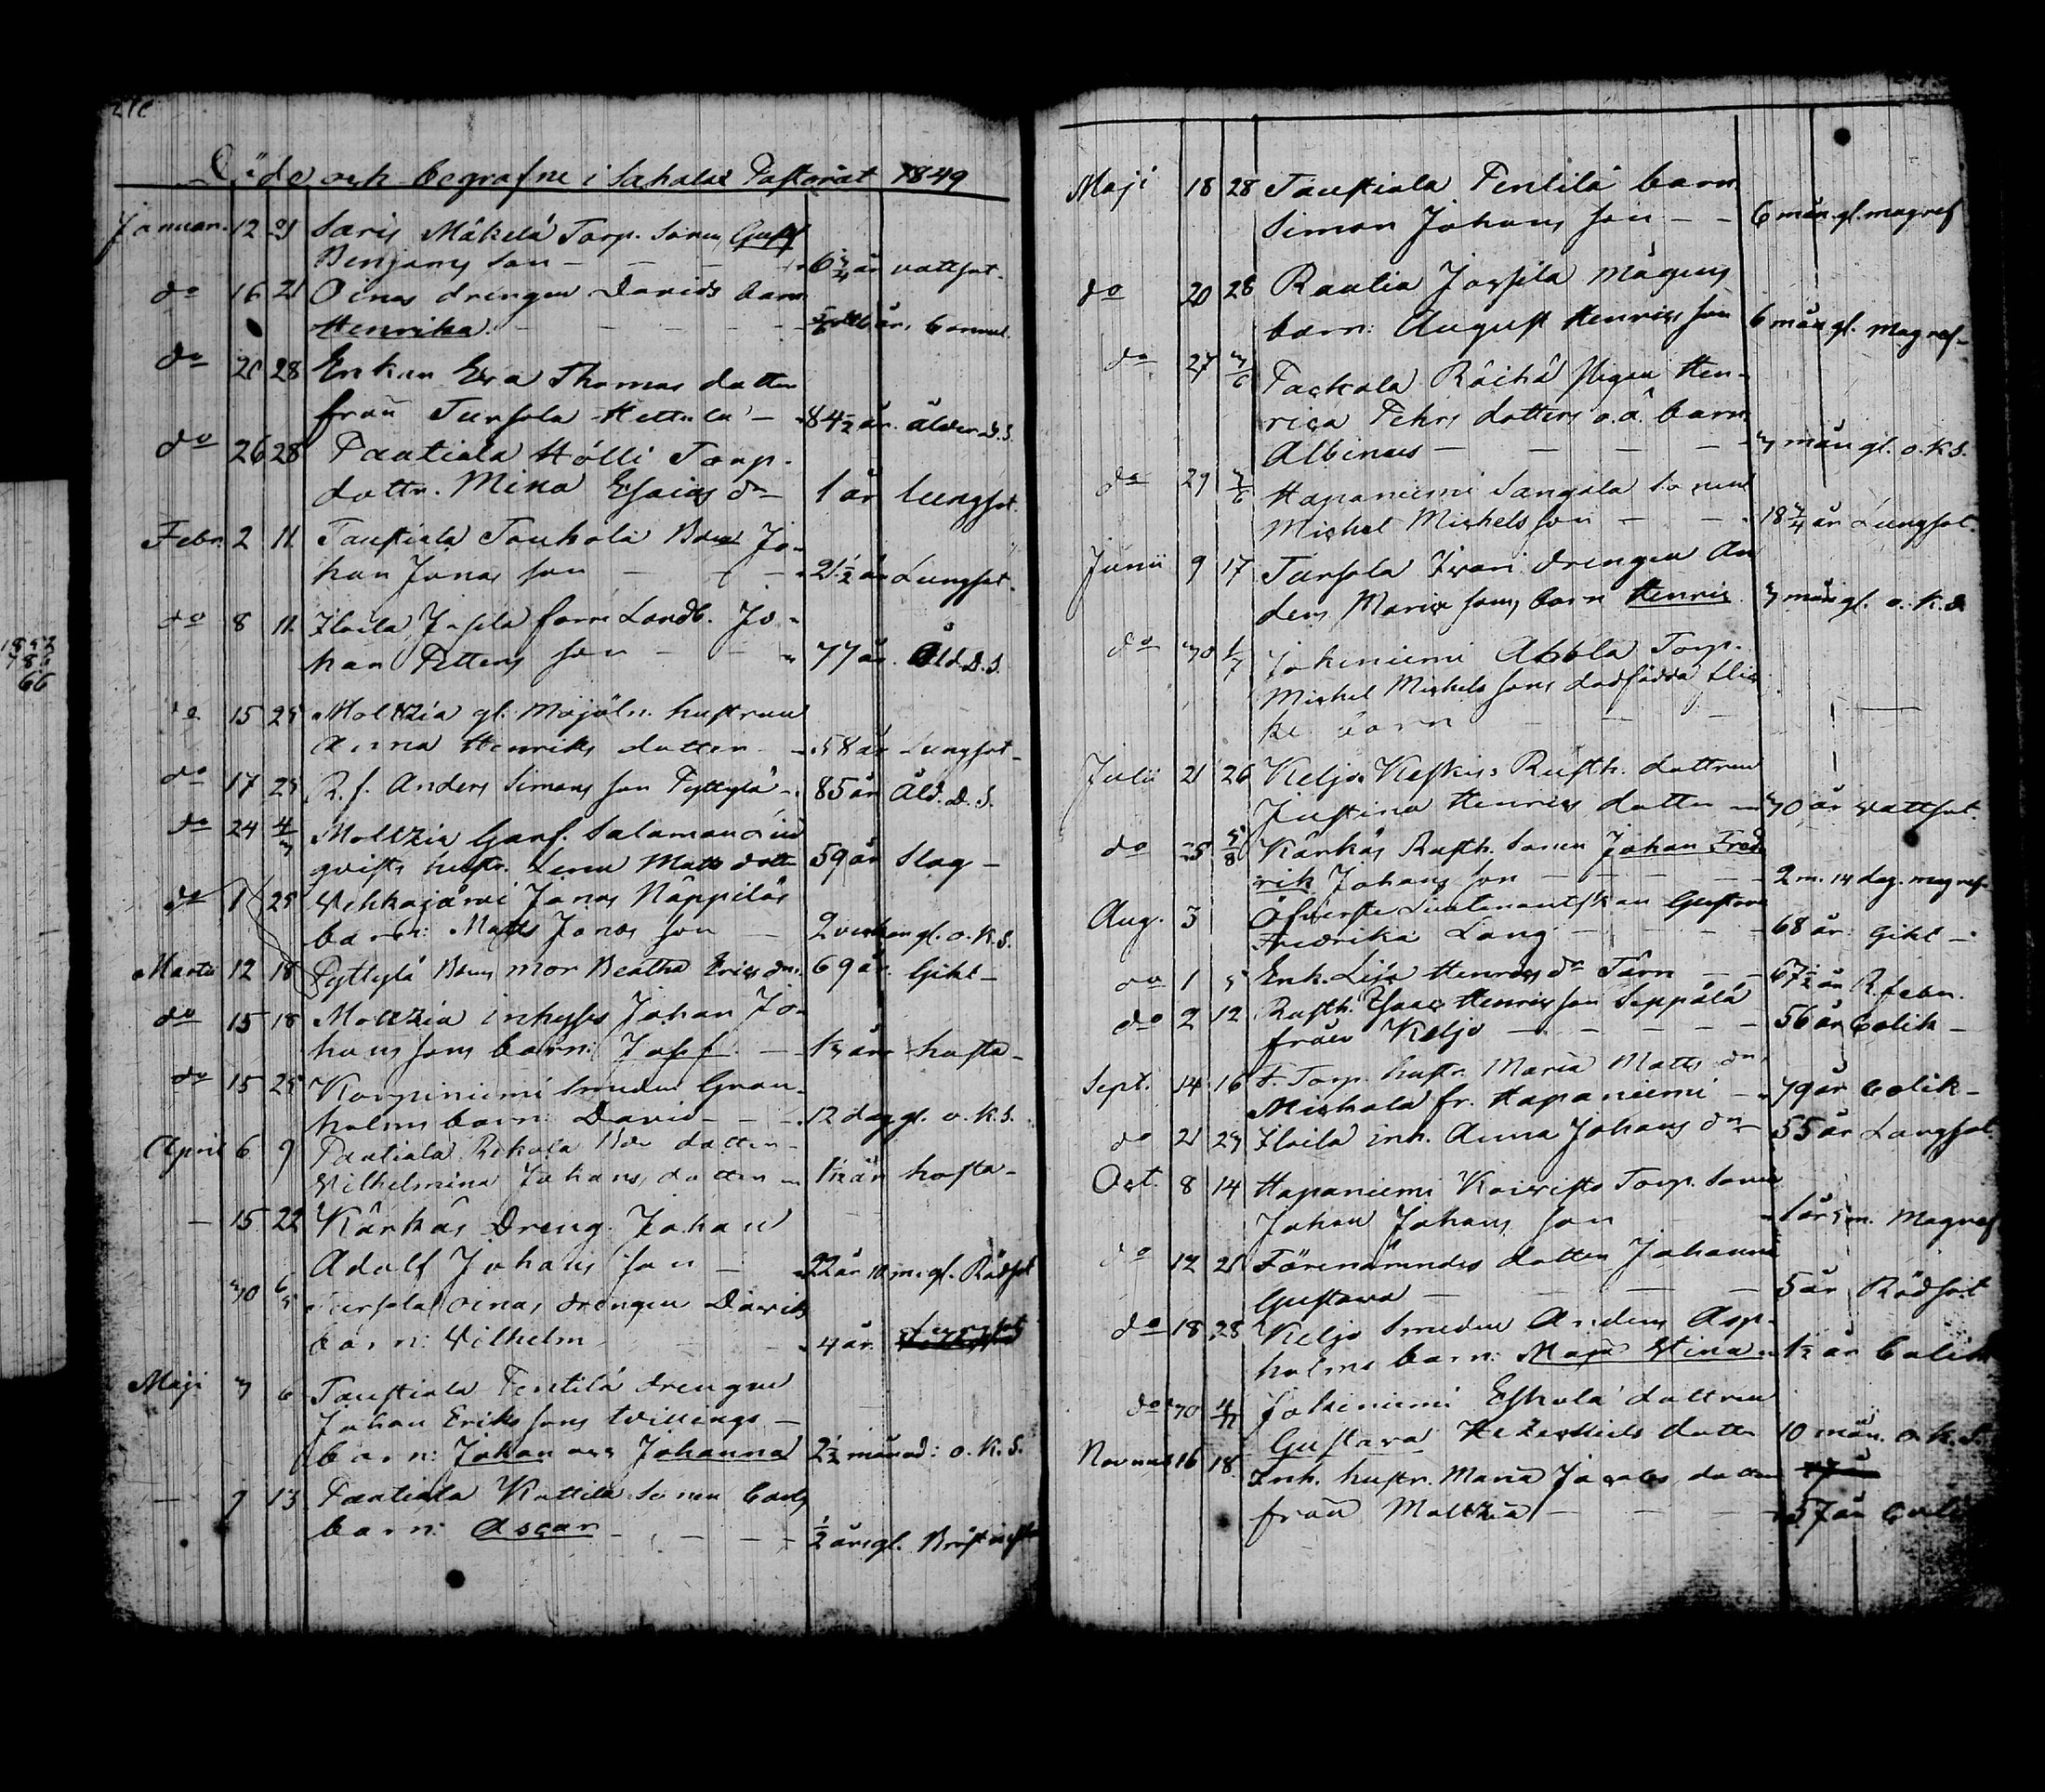 Döde och begrafne i Sahalax Pastorat 1849
Januari 12 21 Saris Mäkelä Torp. Sonen Gust.
Benjams Son – – 6 3/4 år vattsot.
do 16 21 Oinas drengen Davids barn
Henrika. – – –
do 20 28 Enkan Eva Thomas dotter
från Tursola Hettula – 84 1/2 år. ålder. d. s.
do 26 28 Pautiala Hölli Torp.
dottr. Mina Esaias dr 1 år lungsot.
Febr. 2 11 Taustiala Touhola Bond Jo-
han Jonas son – – 21 1/2 år Lungsot.
do 8 11 Ilaila Jussila form Landb. Jo-
han Petters son – – 77 år. Åld. D. S.
do 15 25 Moltzia gl. Majoln. hustrun
Anna Henriks dotter – 58 år Lungsot –
do 17 25 R. f. Anders Simons son Pyttylä – 85 år Åld. D. S.
do 24 4/3 Moltzia Garf. Salamon Lind
qvists hustr. Lena Matts dotter 59 år Slag –
do 1 25 Vehkajärvi Jonas Näppiläs
barn: Matts Jonas son – 2 veckor gl. o. k. s.
Martii 12 18 Pyttylä Bons mor Beatha Erics dr. 69 år. Gikt –
do 15 18 Moltzia inhyses Johan Jo-
hans sons barn: Josef. – 1/3 år hosta –
do 15 25 Korpiniemi smeden Gran-
holms barn: David – – 12 dag gl. o. k. s.
April 6 9 Pautiala Rekola Bde dotter
Vilhelmina Johans dotter – 1 1/2 år hosta –
– 15 22 Kärkäs Dreng. Johan
Adolf Johans son – 22 år 10 m. gl. Rödsot
30 6/5 Tursola Oinas drengen Davids
barn: Vilhelm – 4 år Lungsot
Maji 3 6 Taustiala Pentilä drengen
Johan Eriks sons tvillings –
barn: Johan och Johanna 2 1/2 månad: o. k. s.
– 7 13 Pautiala Kattila Sonen Carls
barn: Ascar – – – 1/2 års gl. Bröst
Maji 18 28 Taustiala Pentilä barn
Simon Johans son – – 6 mån. gl. magref
do 20 28 Rautia Jussila Mågens
barn: August Henrics son 6 mån gl. Magref –
do 27 3/6 Packala Räihä Pigan Hen-
rica Pehrs dotters o. ä. barn
Albinus – – – 3 mån gl. o. k. s.
do 29 3/6 Hapaniemi Sangola Sonen
Michel Michels son – – 18 3/4 år Lungsot.
Junii 9 17 Tursola Iwari drengen An
ders Maria sons barn Henric 3 mån gl. o. k. s.
do 30 1/7 Jokiniemi Abbla Torp.
Michel Michels sons dödfödda flic
ke barn – – –
Julii 21 26 Keljo Keskis Rusth. dottren
Justina Henrics dotter – 30 år vattsot.
do 25 5/8 Kärkäs Rusth. Sonen Johan Fred
rik Johans son – – 2 m. 14 dag. magref.
Aug. 3 Öfverste Lieutenantskan Gustava
Fredrika Lang – – 68 år: gikt –
do 1 5 Enk. Lisa Henrics dr Törn – – 67 1/2 år R. feber.
do 2 12 Rusth. Isaac Henrics son Seppälä
från Keljo – – – 56 år Colik –
Sept. 14 16 F. Torp. hustr. Maria Matts dr
Mickala fr. Hapaniemi – 79 år Colik –
do 21 23 Ilaila inh. Anna Johans dr – 55 år Lungsot.
Oct. 8 14 Hapaniemi Koivisto Torp. Sonen
Johan Johans son – 1 år 5 m. Magref
do 12 21 Förenämndes dotter Johanna
Gustava – – – 5 år Rödsot
do 18 28 Keljo Smeden Anders Asp-
holms barn: Maja Stina – 1 1/2 år Colik
do 30 4/11 Jokiniemi Eskola dottren
Gustava Hezekiels dotter 10 mån. o. k. s.
November 16 18 Inh. hustr. Maria Jacobs dotter
från Moltzia – – – 57 år Colik